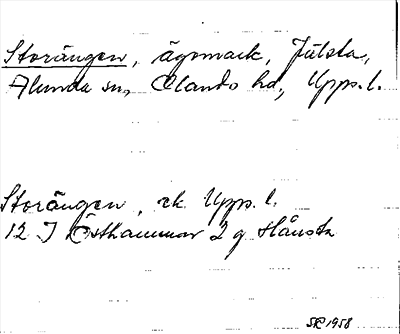 Storängen, ägomark, Julsta,
Alunda sn, Olands hd, Upps. l.
Storängen, ek Upps. l.
12 I Östhammar 2 g Hånsta
SR 1958